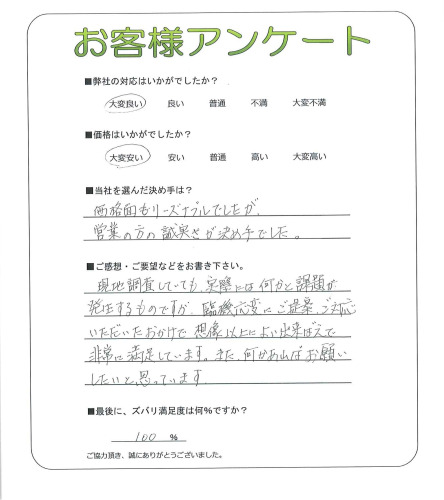 お客様アンケート
■弊社の対応はいかがでしたか？
大変良い 良い 普通 不満 大変不満
■価格はいかがでしたか？
大変安い 安い 普通 高い 大変高い
■当社を選んだ決め手は？
価格面もリーズナブルでしたが、
営業の方の誠実さが決め手でした。
■ご感想・ご要望などをお書き下さい。
現地調査していても、実際には何かと課題が
発生するものですが、臨機応変にご提案、ご対応
いただいたおかげで想像以上によい出来ばえで
非常に満足しています。また、何かあればお願い
したいと思っています
■最後に、ズバリ満足度は何％ですか？
100 ％
ご協力頂き、誠にありがとうございました。